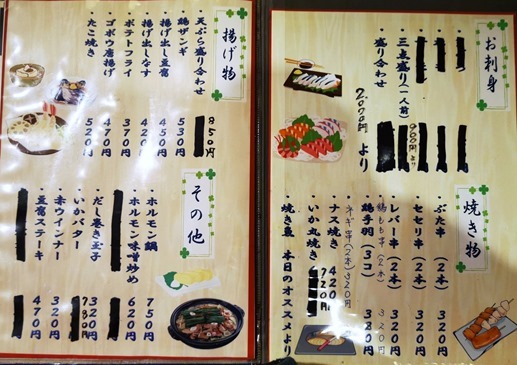 お刺身
三点盛り(一人前) 900円より
盛り合わせ 2,000円より
焼き物
ぶた串(2本) 320円
トセセリ串(2本) 320円
レバー串(2本) 320円
鶏もも串(2本) 320円
鶏手羽(3コ) 380円
ネギ串(2本) 320円
ナス焼き 420円
いか丸焼き 720円
焼き魚 本日のオススメより
揚げ物
天ぷら盛り合わせ 850円
鶏ザンギ 530円
揚げ出し豆腐 450円
揚げ出しなす 420円
ポテトフライ 370円
ゴボウ唐揚げ 470円
たこ焼き 520円
その他
ホルモン鍋 750円
ホルモン味噌炒め 620円
だし巻き玉子 320円
いかバター
赤ウインナー 320円
豆腐ステーキ 470円